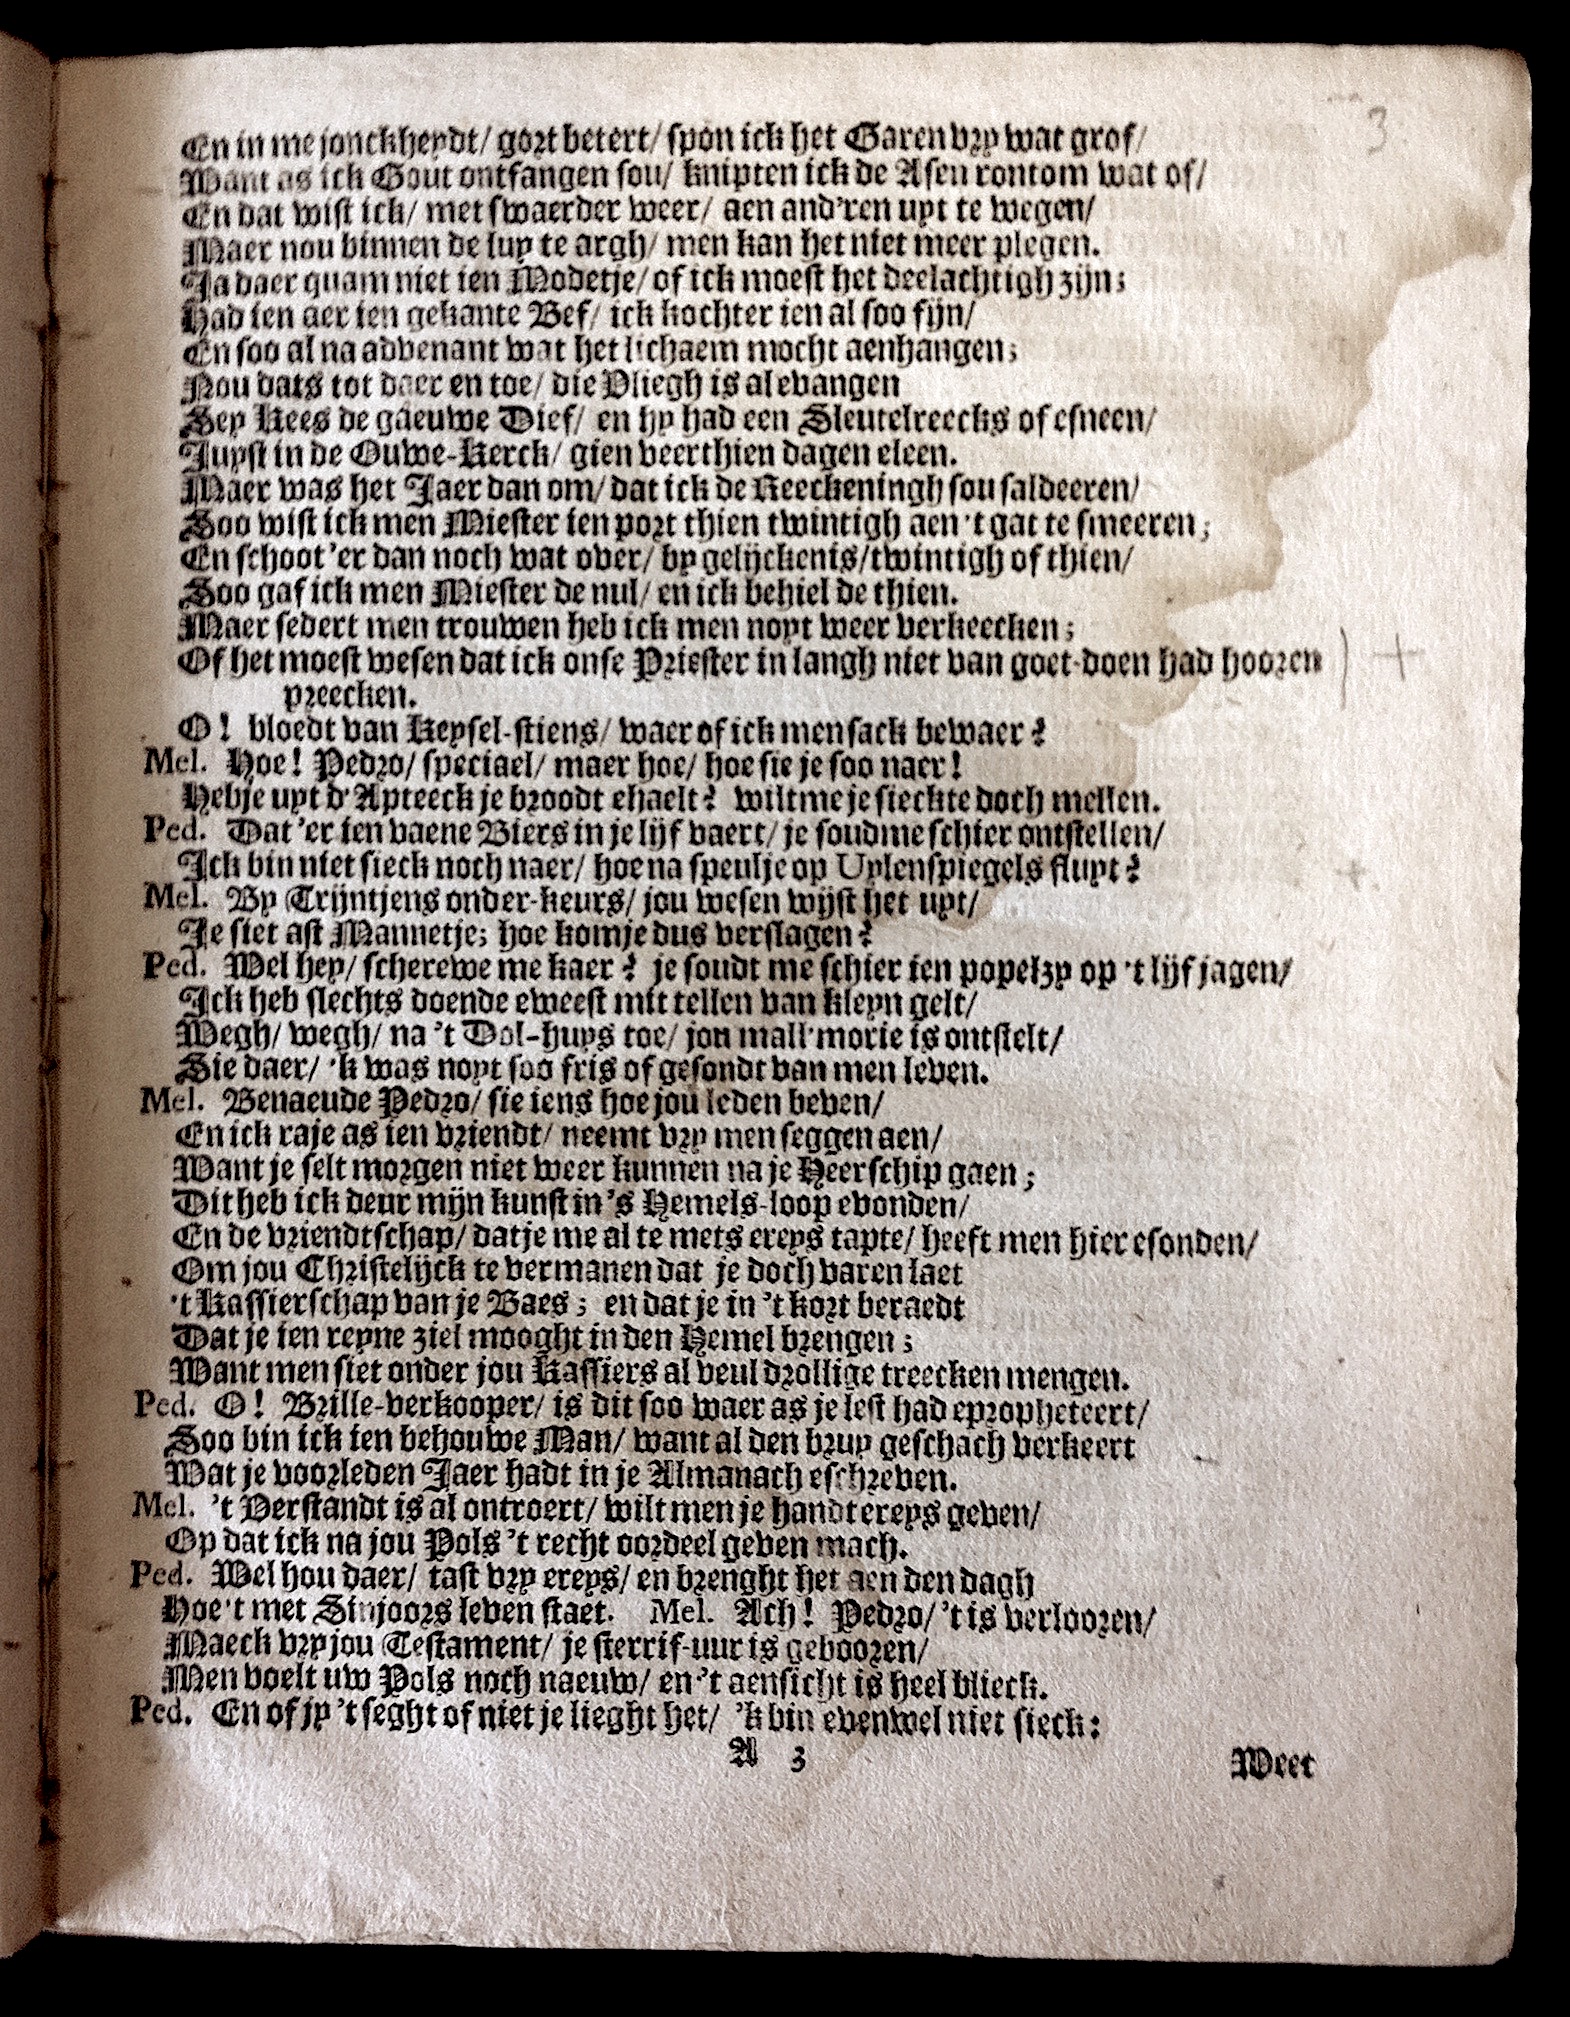 3
En in me jonckheydt/ gort betert/ spon ick het Garen vry wat grof/
Want as ick Gout ontfangen sou/ knipten ick de Asen rontom wat of/
En dat wist ick/ met swaerder weer/ aen and'ren uyt te wegen/
Maer nou binnen de luy te argh/ men kan het niet meer plegen.
Ja daer quam niet ien Modetje/ of ick moest het deelachtigh zijn;
Had ien aer ien gekante Bef/ ick kochter ien al soo fijn/
En soo al na advenant wat het lichaem mocht aenhangen;
Nou dats tot daer en toe/ die Vliegh is al evangen
Sey Kees de gaeuwe Dief/ en hy had een Sleutelreecks of esneen/
Juyst in de Ouwe-Kerck/ gien veerthien dagen eleen.
Maer was het Jaer dan om/ dat ick de Reeckeningh sou saldeeren/
Soo wist ick men Miester ien port thien twintigh aen 't gat te smeeren;
En schoot 'er dan noch wat over/ by gelijckenis/ twintigh of thien/
Soo gaf ick men Miester de nul/ en ick behiel de thien.
Maer sedert men trouwen heb ick men noyt weer verkeecken;
Of het moest wesen dat ick onse Priester in langh niet van goet-doen had hooren
preecken.
O! bloedt van Keysel-stiens/ waer of ick men sack bewaer?
Mel. Hoe! Pedro/ speciael/ maer hoe/ hoe sie je soo naer!
Hebje uyt d'Apteeck je broodt ehaelt? wilt me je sieckte doch mellen.
Ped. Dat 'er ien vaene Biers in je lijf vaert/ je soud me schier ontstellen/
Ick bin niet sieck noch naer/ hoe na speulje op Uylenspiegels fluyt?
Mel. By Trijntjens onder-keurs/ jou wesen wijst het uyt/
Je siet ast Mannetje; hoe komje dus verslagen?
Ped. Wel hey/ scherewe me kaer? je soudt me schier ien popelzy op 't lijf jagen/
Ick heb slechts doende eweest mit tellen van kleyn gelt/
Wegh/ wegh/ na 't Dol-huys toe/ jou mall'morie is ontstelt/
Sie daer/ 'k was noyt soo fris of gesondt van men leven.
Mel. Benaeude Pedro/ sie iens hoe jou leden beven/
En ick raje as ien vriendt/ neemt vry men seggen aen/
Want je selt morgen niet weer kunnen na je Heerschip gaen;
Dit heb ick deur mijn kunst in 's Hemels-loop evonden/
En de vriendtschap/ datje me al te mets ereys tapte/ heeft men hier esonden/
Om jou Christelijck te vermanen dat je doch varen laet
't Kassierschap van je Baes; en dat je in 't kort beraedt
Dat je ien reyne ziel mooght in den Hemel brengen;
Want men siet onder jou Kassiers al veul drollige treecken mengen.
Ped. O! Brille-verkooper/ is dit soo waer as je lest had epropheteert/
Soo bin ick ien behouwe Man/ want al den bruy geschach verkeert
Wat je voorleden Jaer hadt in je Almanach eschreven.
Mel. 't Verstandt is al ontroert/ wilt men je handt ereys geven/
Op dat ick na jou Pols 't recht oordeel geven mach.
Ped. Wel hou daer/ tast vry ereys/ en brenght het aen den dagh
Hoe 't met Sinjoors leven staet. Mel. Ach! Pedro/ 't is verlooren/
Maeck vry jou Testament/ je sterrif-uur is gebooren/
Men voelt uw Pols noch naeuw/ en 't aensicht is heel blieck.
Ped. En of jy 't seght of niet je lieght het/ 'k bin evenwel niet sieck:
A 3
Weet